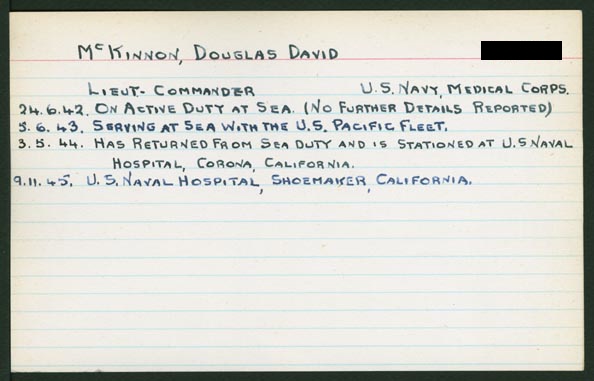 McKinnon, Douglas David
Lieut-Commander U.S. Navy, Medical Corps.
24.6.42. On Active Duty at Sea. (No Further Details Reported)
5.6.43. Serving at Sea with the U.S. Pacific Fleet.
3.5.44. Has Returned from Sea Duty and is Stationed at U.S Naval
Hospital, Corona, California.
9.11.45. U.S. Naval Hospital, Shoemaker, California.